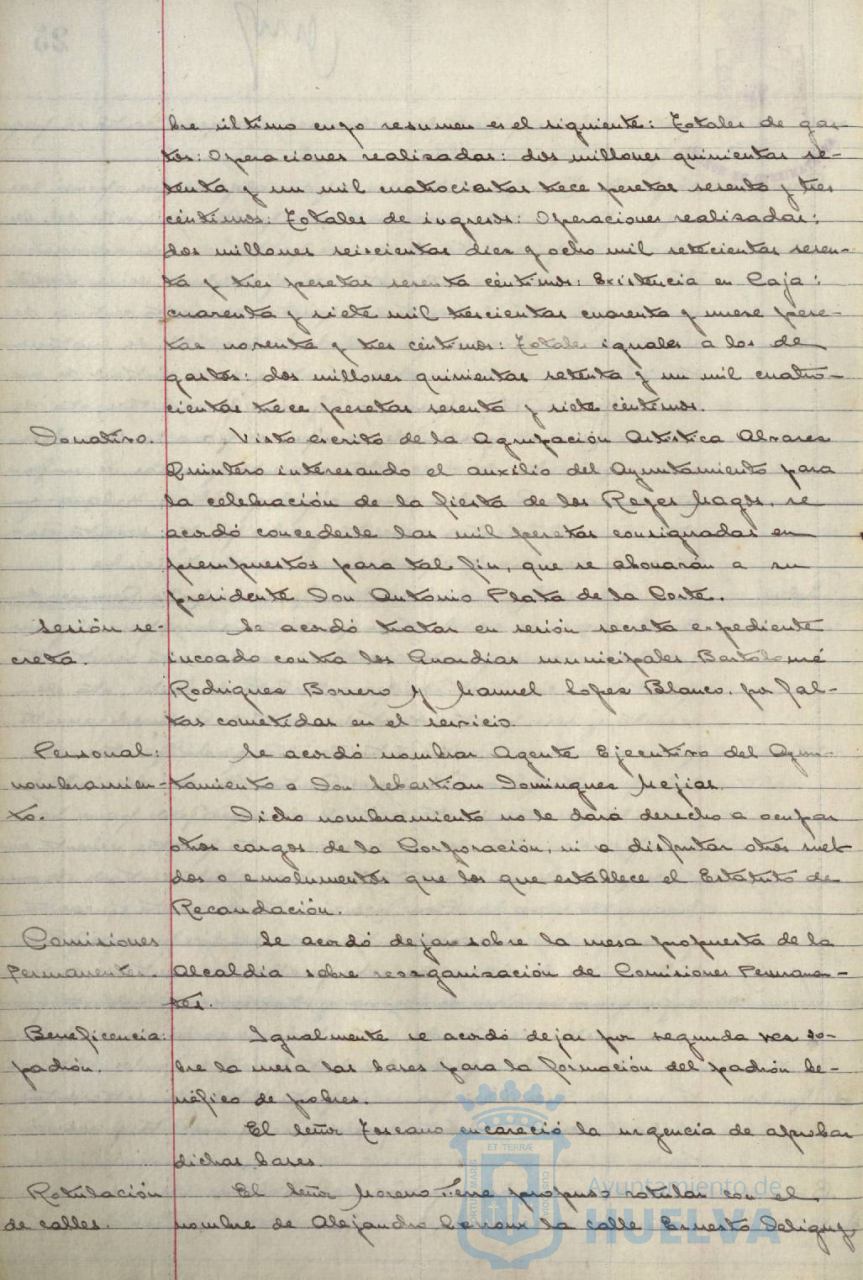 bre último cuyo resumen es el siguiente: Totales de gas-
tos: Operaciones realizadas: dos millones quinientas se-
tenta y un mil cuatrocientas trece pesetas sesenta y tres
céntimos: Totales de ingresos: Operaciones realizadas:
dos millones seiscientas diez y ocho mil setecientas sesen-
ta y tres pesetas sesenta céntimos: Existencia en Caja:
cuarenta y siete mil trescientas cuarenta y nueve pese-
tas noventa y tres céntimos: Totales iguales a los de
gastos: dos millones quinientas setenta y un mil cuatro-
cientas trece pesetas sesenta y siete céntimos.
Donativo. Visto escrito de la Agrupación Artística Alvarez
Quintero interesando el auxilio del Ayuntamiento para
la celebración de la fiesta de los Reyes Magos, se
acordó concederle las mil pesetas consignadas en
presupuestos para tal fin, que se abonarán a su
presidente Don Antonio Plata de la Corte.
Sesión se- Se acordó tratar en sesión secreta expediente
creta. incoado contra los Guardias municipales Bartolomé
Rodriguez Borrero y Manuel Lopez Blanco, por fal-
tas cometidas en el servicio.
Personal: Se acordó nombrar Agente Ejecutivo del Ayun-
nombramien- tamiento a Don Sebastian Dominguez Mejias.
to. Dicho nombramiento no le dará derecho a ocupar
otros cargos de la Corporación, ni a disfrutar otros suel-
dos o emolumentos que los que establece el Estatuto de
Recaudación.
Comisiones Se acordó dejar sobre la mesa propuesta de la
Permanentes. Alcaldía sobre reorganización de Comisiones Permanen-
tes.
Beneficencia: Igualmente se acordó dejar por segunda vez so-
padrón. bre la mesa las bases para la formación del padrón be-
néfico de pobres.
El Señor Toscano encareció la urgencia de aprobar
dichas bases.
Rotulación El Señor Moreno propuso rotular con el
de calles. nombre de Alejandro Lerroux la calle Ernesto Deligny
Ayuntamiento de
HUELVA